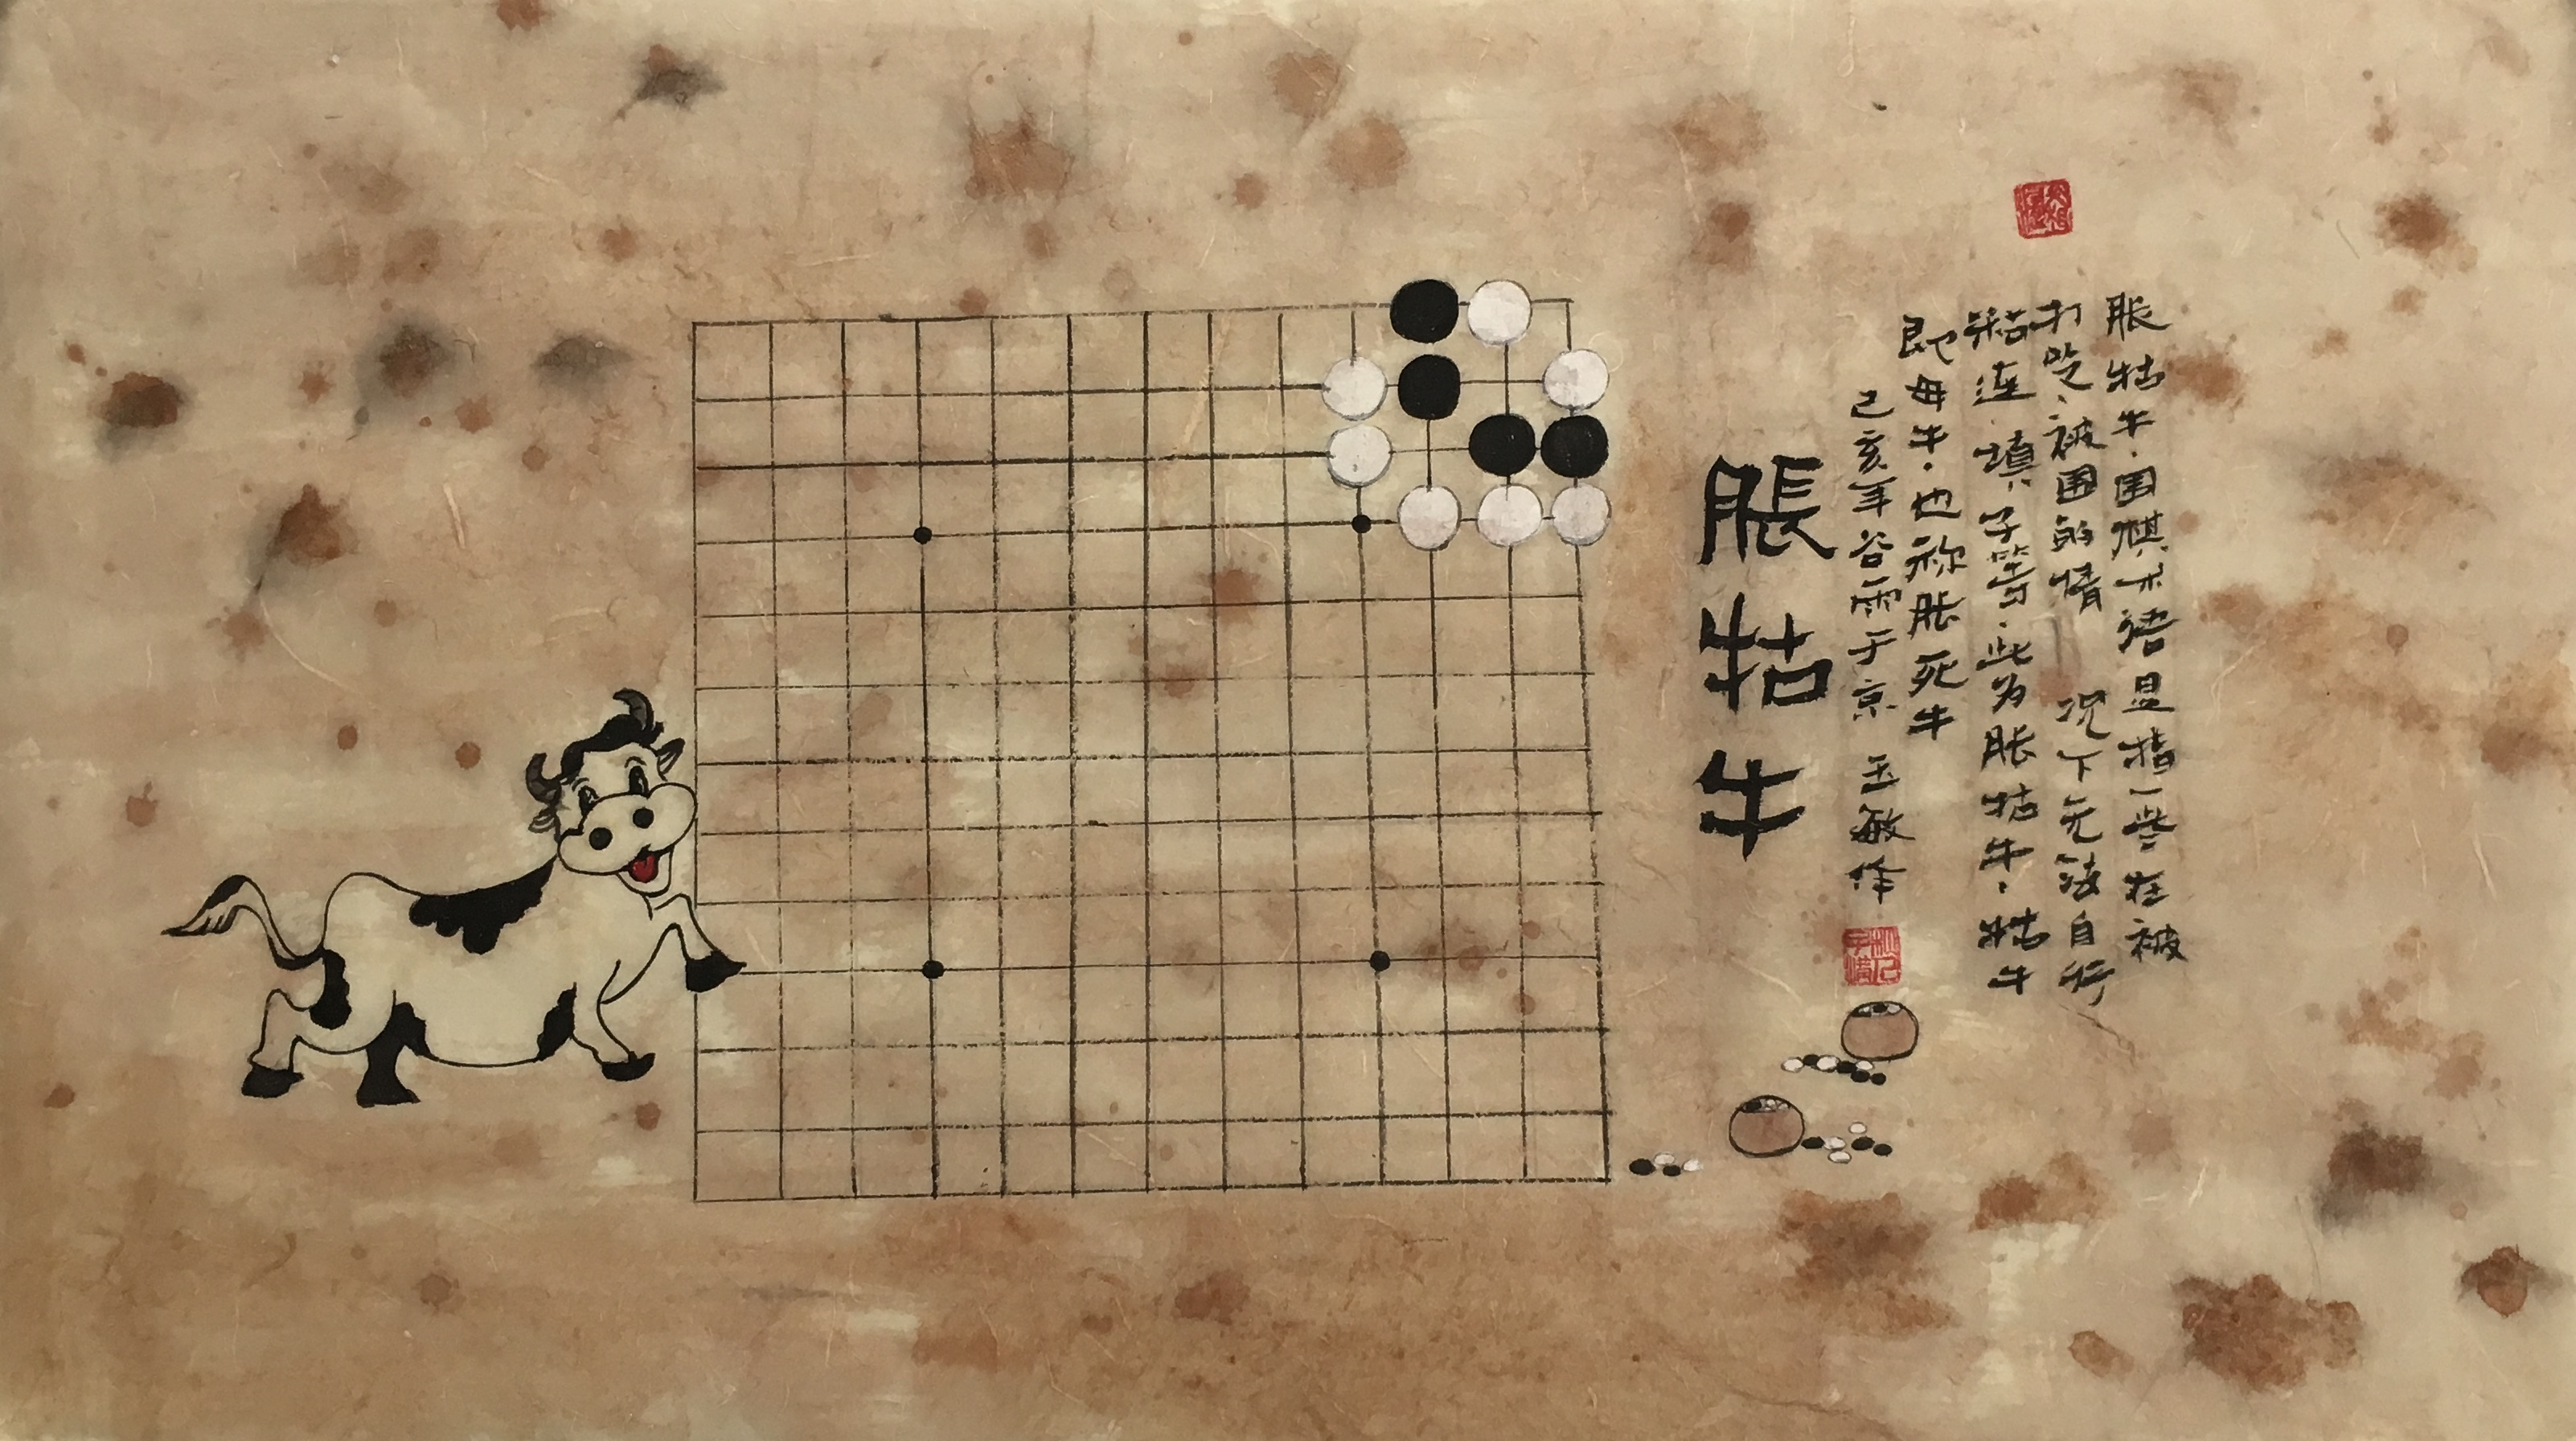 胀牯牛.围棋术语显指一些在被
打吃、被围的情况下无法自行
粘连.填子等.此为胀牯牛.牯牛
即母牛.也称胀死牛
己亥年谷雨于京 玉敏作
脹牯牛